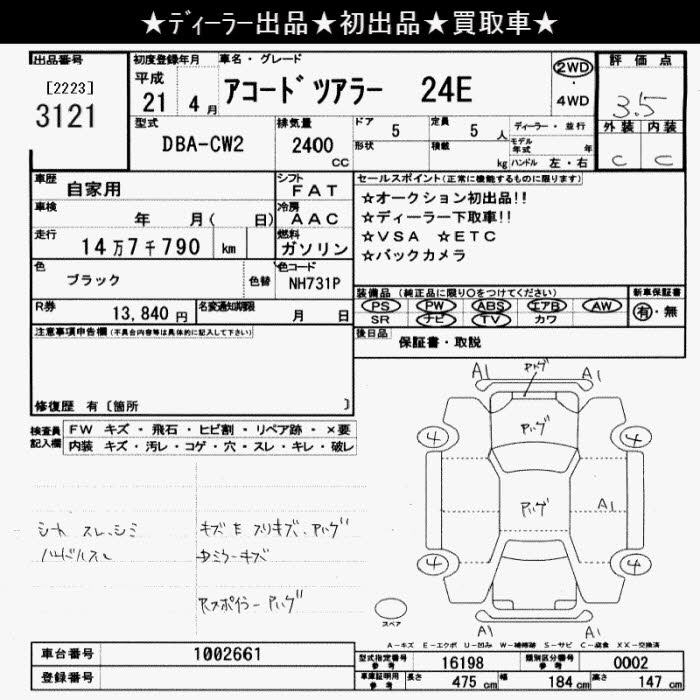 ★ディーラー出品★初出品★買取車★
出品番号
[2223]
3121
初度登録年月
平成
21 4月
車名・グレード
アコードツアラー 24E
2WD
4WD
評価点
3.5
外装 内装
C C
型式
DBA-CW2
排気量
2400
CC
ドア
5
定員
5 人
形状
積載
kg
ディーラー・並行
モデル年式 年
ハンドル 左・右
車歴
自家用
シフト
FAT
車検
年 月( 日)
冷房
AAC
走行
14万7千790 km
燃料
ガソリン
色
ブラック
色替
色コード
NH731P
R券
13,840円
名変通知期限
月 日
セールスポイント(正常に機能するものに限ります)
☆オークション初出品!!
☆ディーラー下取車!!
☆VSA ☆ETC
☆バックカメラ
装備品 (純正品に限り○をつけてください)
PS PW ABS エアB AW
SR ナビ TV カワ
新車保証書
有・無
後日品
保証書・取説
注意事項申告欄(不具合内容等は具体的に記入して下さい)
修復歴 有〔箇所 〕
検査員記入欄
FW キズ・飛石・ヒビ割・リペア跡・×要
内装 キズ・汚レ・コゲ・穴・スレ・キレ・破レ
シート スレ、シミ
ハンドルスレ
キズ E スリキズ、アハゲ
ミラーキズ
Rスポイラー アハゲ
A1 アハゲ A1
アハゲ
4 4
アハゲ
A1
4 4
A1 A1
スペア
A-キズ E-エクボ U-凹み W-補修跡 S-サビ C-腐食 XX-交換済
車台番号
1002661
登録番号
型式指定番号 参考
16198
類別区分番号 参考
0002
車庫証明用 参考
長さ 475 cm
幅 184 cm
高さ 147 cm